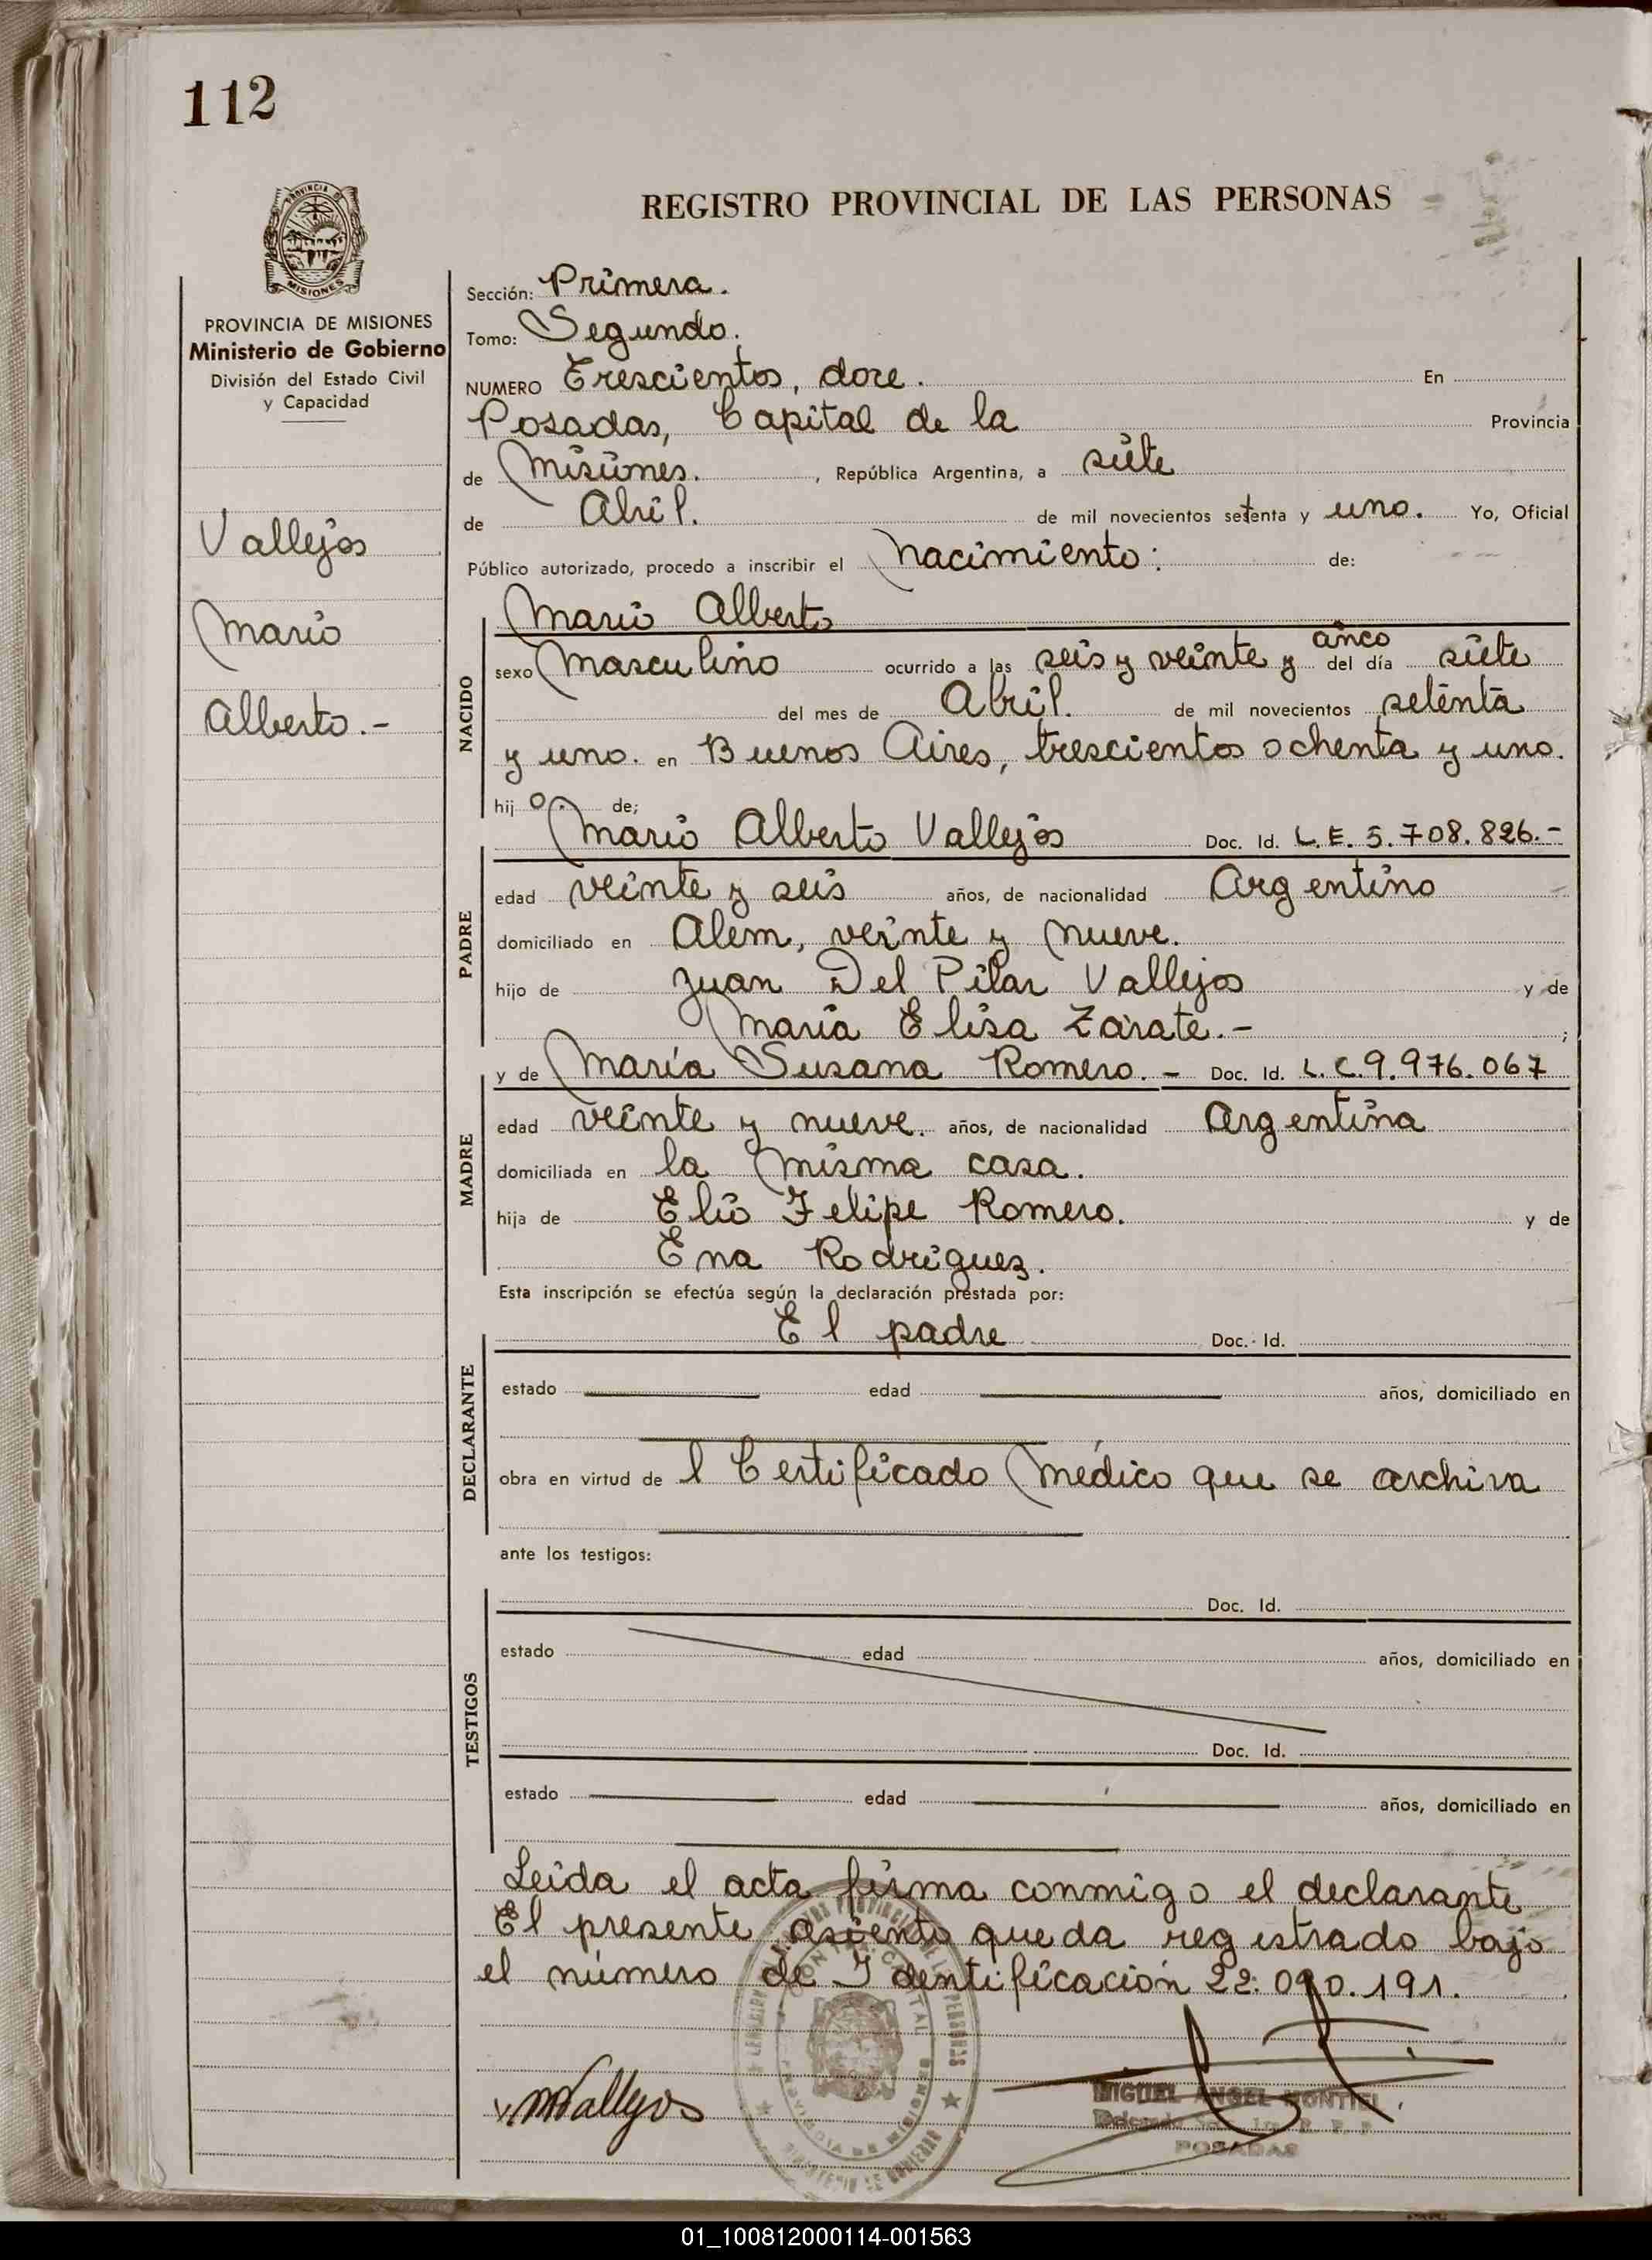 112
PROVINCIA DE
MISIONES
REGISTRO PROVINCIAL DE LAS PERSONAS
PROVINCIA DE MISIONES
Ministerio de Gobierno
División del Estado Civil
y Capacidad
Vallejos
Mario
Alberto.-
Sección: Primera.
Tomo: Segundo.
NUMERO Trescientos, doce. En
Posadas, Capital de la Provincia
de Misiones. , República Argentina, a siete
de Abril. de mil novecientos setenta y uno. Yo, Oficial
Público autorizado, procedo a inscribir el nacimiento: de:
NACIDO
Mario Alberto
cinco
sexo Masculino ocurrido a las seis y veinte y del día siete
del mes de Abril. de mil novecientos setenta
y uno. en Buenos Aires, trescientos ochenta y uno.
hij o. de;
PADRE
Mario Alberto Vallejos Doc. Id. L.E. 5.708.826.-
edad veinte y seis años, de nacionalidad Argentino
domiciliado en Alem, veinte y nueve.
hijo de Juan Del Pilar Vallejos y de
María Elisa Zárate.- ;
MADRE
y de María Susana Romero.- Doc. Id. L.C. 9.976.067
edad veinte y nueve. años, de nacionalidad Argentina
domiciliada en la misma casa.
hija de Elio Felipe Romero. y de
Ena Rodriguez.
Esta inscripción se efectúa según la declaración prestada por:
DECLARANTE
El padre Doc. Id.
estado edad años, domiciliado en
obra en virtud de l Certificado Médico que se archiva
ante los testigos:
TESTIGOS
Doc. Id.
estado edad años, domiciliado en
Doc. Id.
estado edad años, domiciliado en
Leída el acta firma conmigo el declarante
El presente asiento queda registrado bajo
el número de Identificación 22.090.191.
MVallejos
MIGUEL ANGEL MONTIEL
POSADAS
01_100812000114-001563